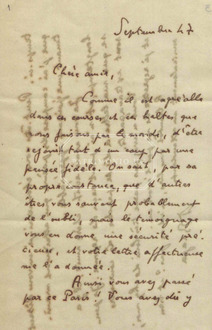 Septembre 47
Chère amie,
Comme il est agréable
dans ces courses et ces haltes que
nous faisons par le monde, d'être
rejoint tout d'un coup par une
pensée fidèle. On sait, par sa
propre constance, que d'autres
êtres vous sauvent probablement
de l'oubli, mais le témoignage
vous en donne une sécurité pré-
cieuse, et votre lettre affectueuse
me l'a donnée.
Ainsi vous avez passé
par ce Paris ! Vous avez dû y